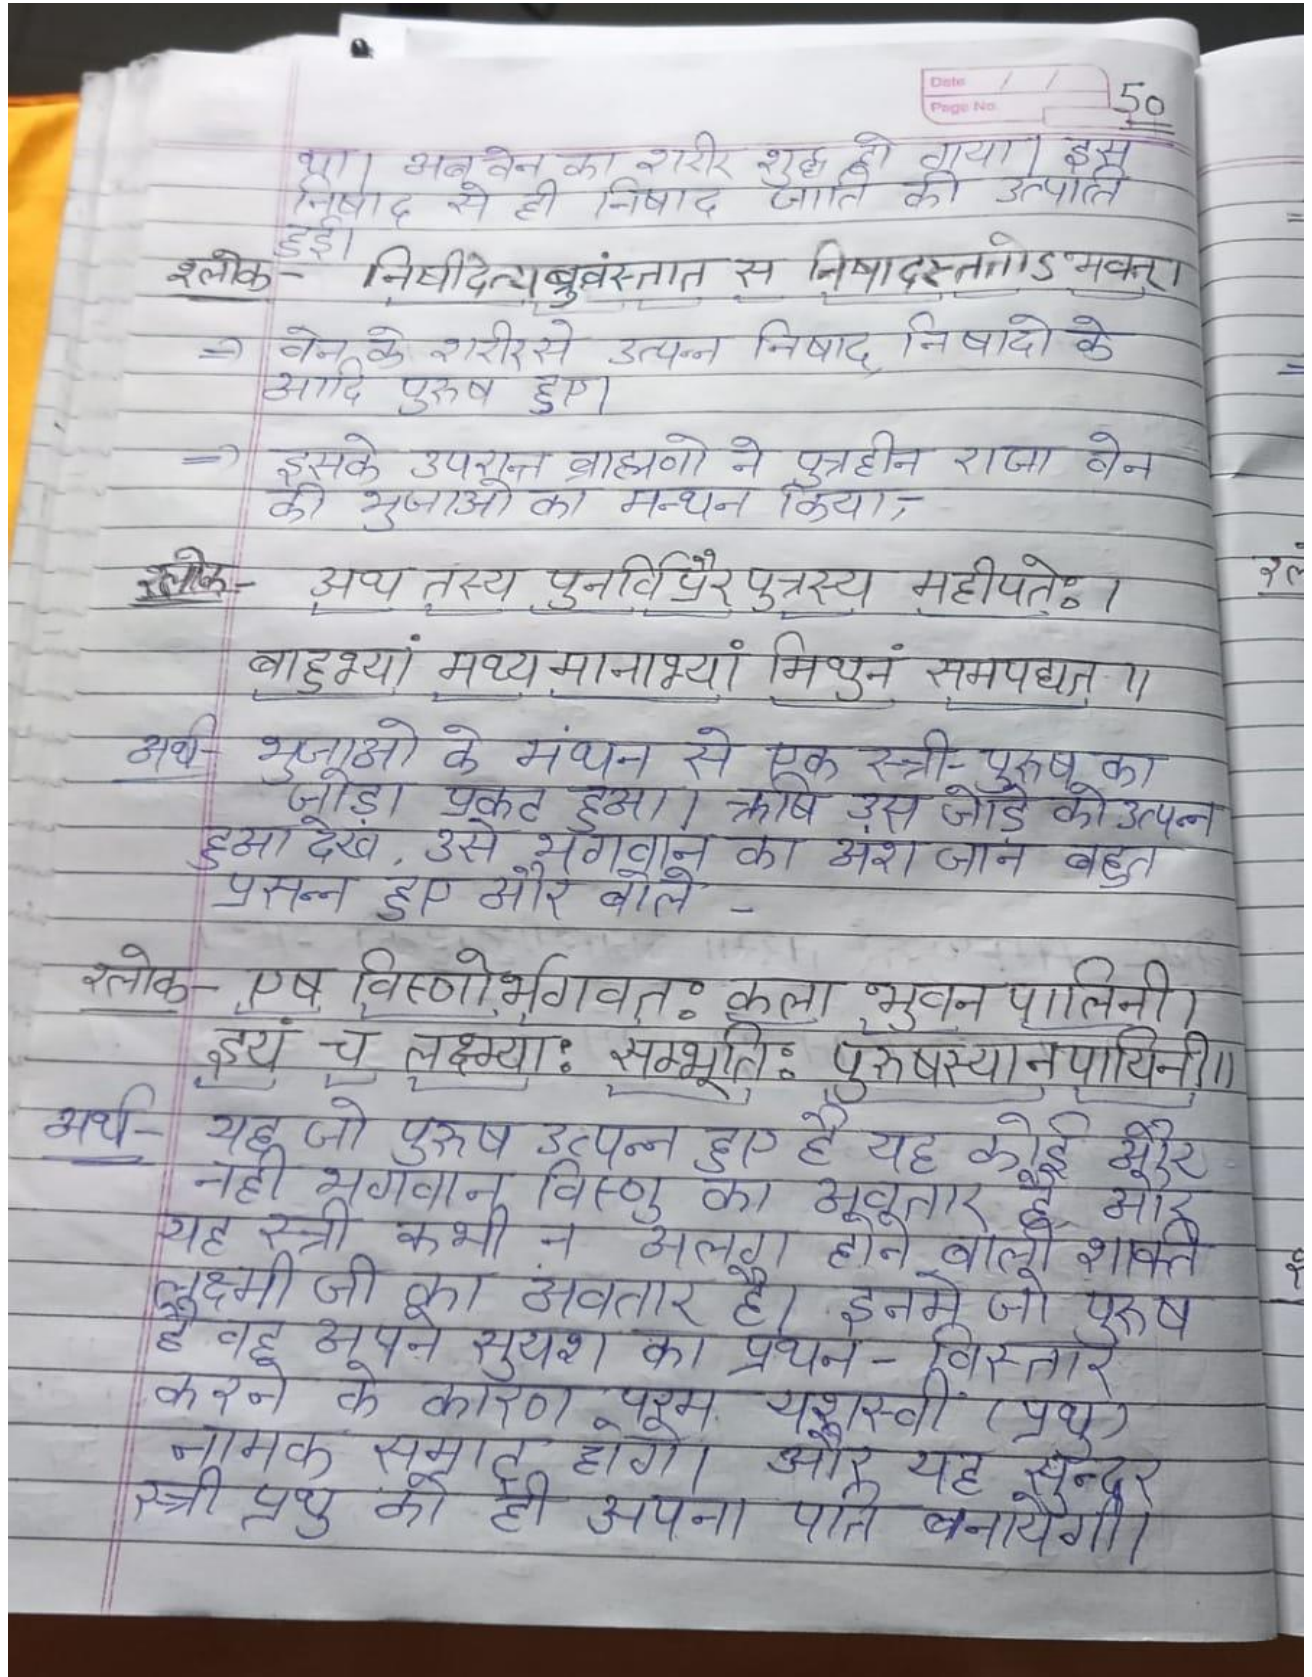 Date / /
Page No.
50
था। अब वेन का शरीर शुद्ध हो गया। इस
निषाद से ही निषाद जाति की उत्पत्ति
हुई।
श्लोक- निषीदेत्यब्रुवंस्तात स निषादस्ततोऽभवत्।
=> वेन के शरीर से उत्पन्न निषाद, निषादो के
आदि पुरुष हुए।
=> इसके उपरान्त ब्राह्मणो ने पुत्रहीन राजा वेन
की भुजाओ का मन्थन किया,-
श्लोक- अथ तस्य पुनर्विप्रैरपुत्रस्य महीपतेः।
बाहुभ्यां मथ्यमानाभ्यां मिथुनं समपद्यत॥
अर्थ- भुजाओ के मंथन से एक स्त्री-पुरुष का
जोड़ा प्रकट हुआ। ऋषि उस जोडे को उत्पन्न
हुआ देख, उसे भगवान का अंश जान बहुत
प्रसन्न हुए और बोले -
श्लोक- एष विष्णोर्भगवतः कला भुवन पालिनी।
इयं च लक्ष्म्याः सम्भूतिः पुरुषस्यानपायिनी॥
अर्थ- यह जो पुरुष उत्पन्न हुए है यह कोई और
नही भगवान विष्णु का अवतार है, और
यह स्त्री कभी न अलग होने वाली शक्ति
लक्ष्मी जी का अवतार है। इनमे जो पुरुष
है वह अपने सुयश का प्रथन - विस्तार
करने के कारण परम यशस्वी (प्रथु)
नामक सम्राट होगे। और यह सुन्दर
स्त्री प्रथु को ही अपना पति बनायेगी।